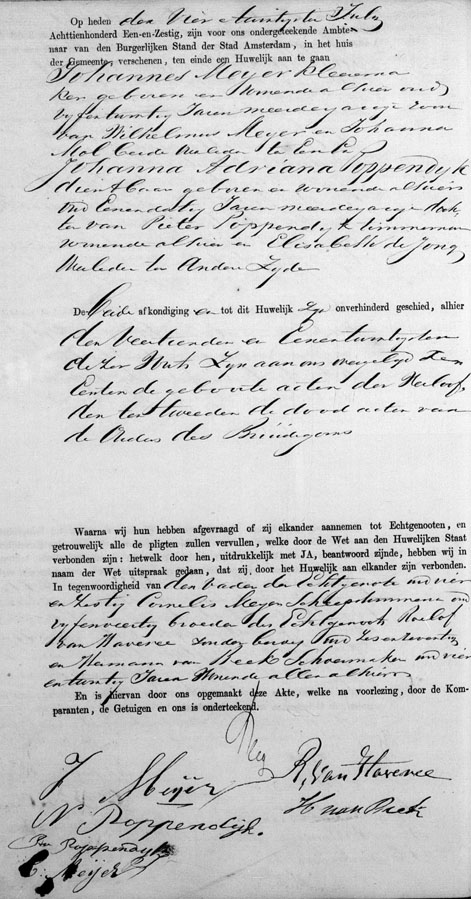 Op heden den Vier en twintigsten July
Achttienhonderd Een-en-Zestig, zijn voor ons ondergeteekende Ambte-
naar van den Burgerlijken Stand der Stad Amsterdam, in het huis
der Gemeente, verschenen, ten einde een Huwelijk aan te gaan
Johannes Meyer kleerma
ker geboren en wonende alhier oud
vyfentwintig Jaren meerderjarige zoon
van Wilhelmus Meyer en Johanna
Mol beide overleden ter Eenre
Johanna Adriana Poppendyk
geboren en wonende alhier
oud Eenendertig Jaren meerderjarige doch
ter van Pieter Poppendyk timmerman
wonende alhier en Elisabeth de Jong
overleden ter Andere Zyde
De beide afkondigingen tot dit Huwelijk zyn onverhinderd geschied, alhier
den Veertienden en Eenentwintigsten
dezer Voorts zyn aan ons overgelegd Ten
Eersten de geboorte acten der Verloof
den ten tweeden de dood acten van
de Ouders des Bruidegoms
Waarna wij hun hebben afgevraagd of zij elkander aannemen tot Echtgenooten, en
getrouwelijk alle de pligten zullen vervullen, welke door de Wet aan den Huwelijken Staat
verbonden zijn: hetwelk door hen, uitdrukkelijk met JA, beantwoord zijnde, hebben wij in
naam der Wet uitspraak gedaan, dat zij door het Huwelijk aan elkander zijn verbonden.
In tegenwoordigheid van den vader der Echtgenote oud vier
en zestig Cornelis Meyer Scheepstimmerman oud
vyfenveertig broeder des Echtgenoots Roelof
van Haveree zonder beroep oud Zesenzeventig
en Hermanus van Beek Schoenmaker oud vier
entwintig Jaren Wonende allen alhier
En is hiervan door ons opgemaakt deze Akte, welke na voorlezing, door de Kom-
paranten, de Getuigen en ons is onderteekend.
J Meijer
R, van Haveree
N Poppendijk.
H van Beek
Poppendyk
C: Meijer